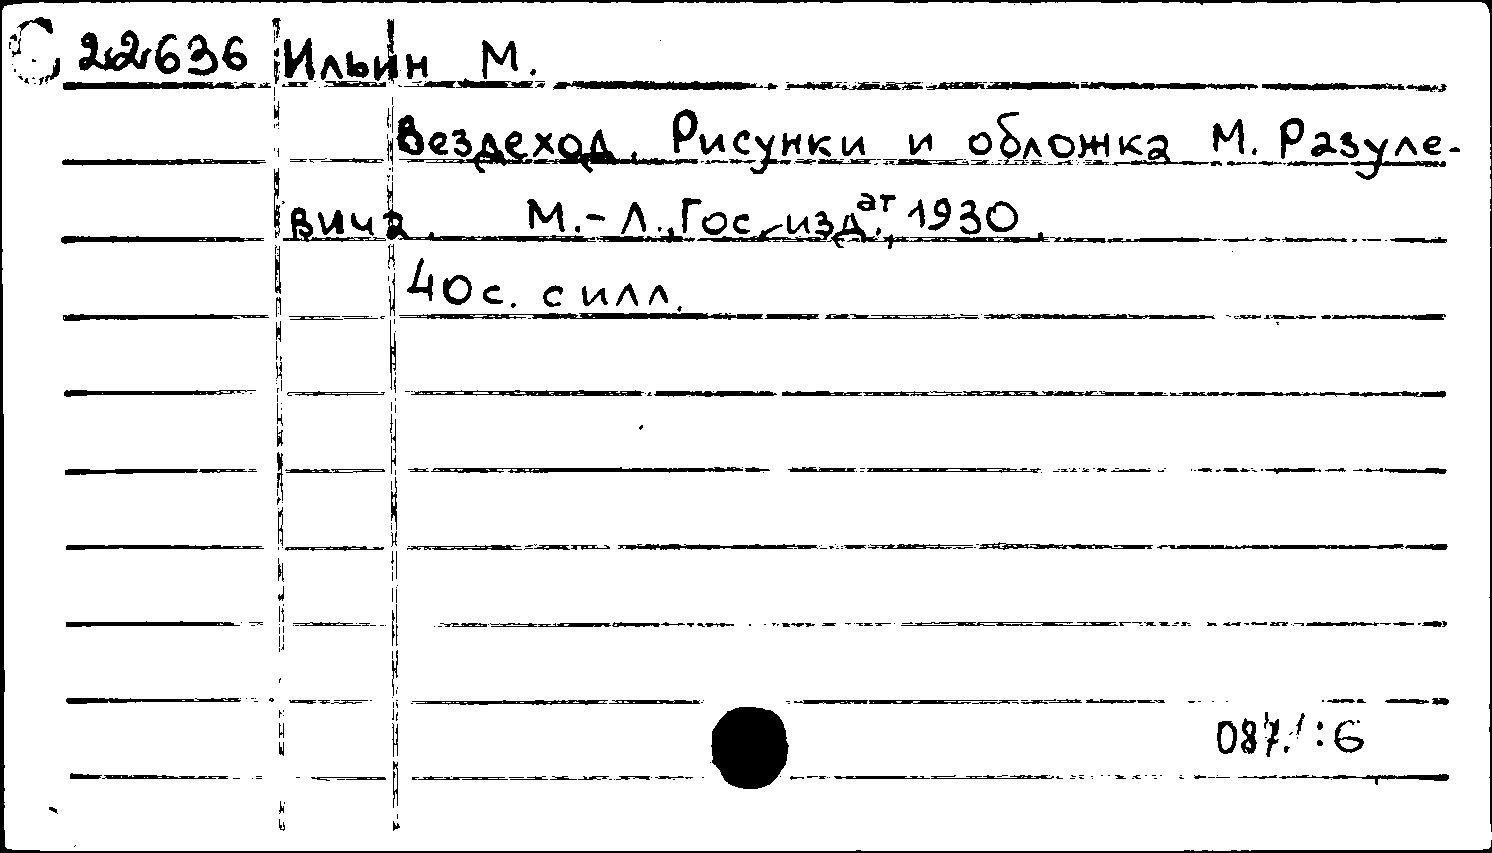 С 22636 Ильин М.
Вездеход. Рисунки и обложка М. Разуле-
вича. М.-Л., Гос. изд.ат, 1930.
40 с. с илл.
087.1:6